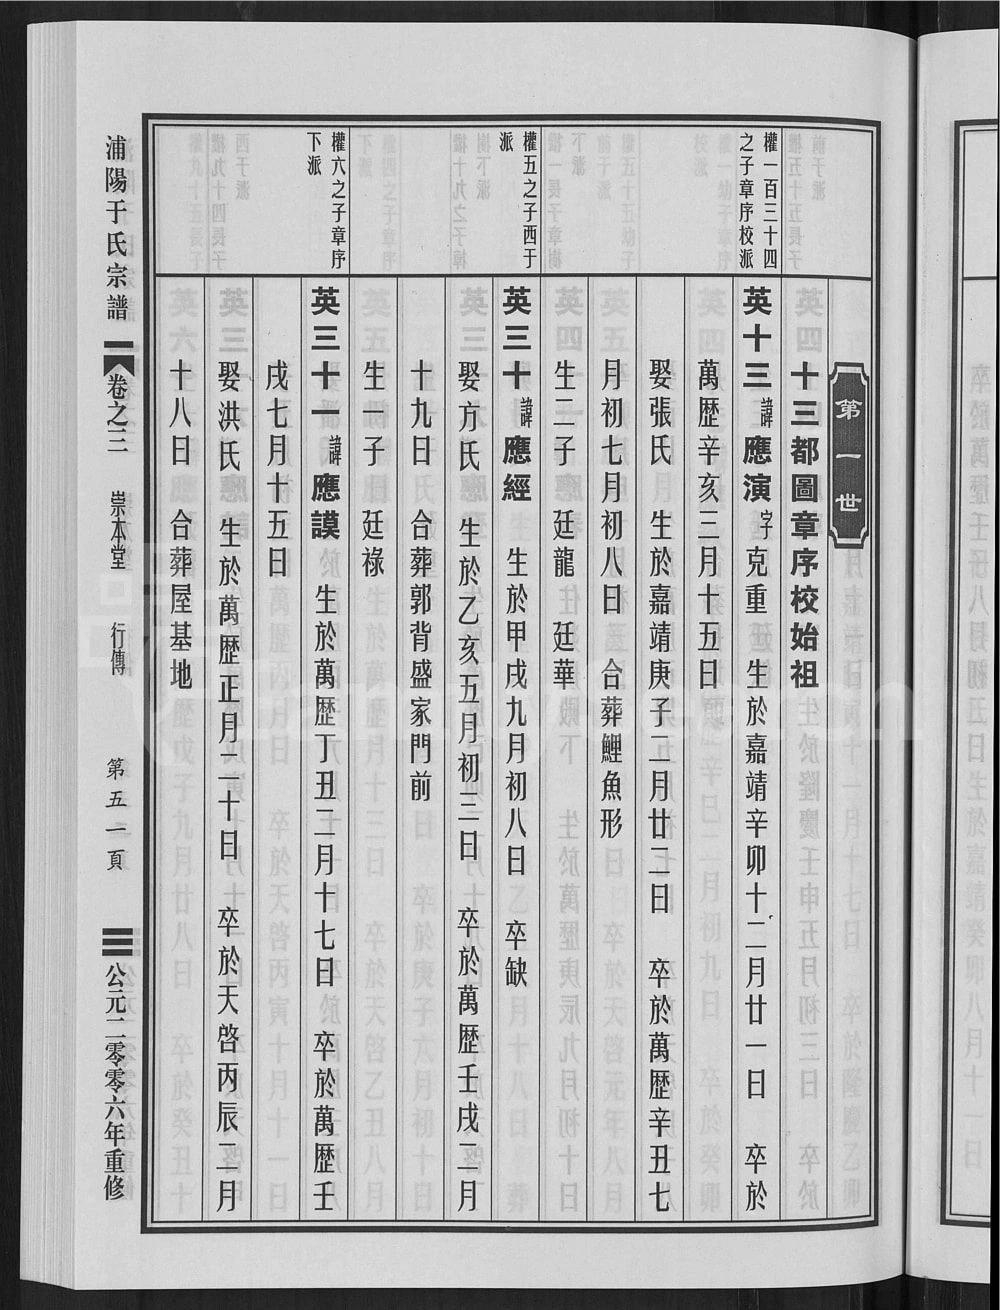 第一世
十三都圖章序校始祖
權一百三十四
之子章序校派
英十三諱應演字克重 生於嘉靖辛卯十二月廿一日 卒於
萬歷辛亥三月十五日
娶張氏 生於嘉靖庚子二月廿二日 卒於萬歷辛丑七
月初七月初八日 合葬鯉魚形
生二子 廷龍 廷華
權五之子西于
派
英三十諱應經 生於甲戌九月初八日 卒缺
娶方氏 生於乙亥五月初三日 卒於萬歷壬戌二月
十九日 合葬郭背盛家門前
生一子 廷祿
權六之子章序
下派
英三十一諱應謨 生於萬歷丁丑二月十七日 卒於萬歷壬
戌七月十五日
娶洪氏 生於萬歷正月二十日 卒於天啓丙辰二月
十八日 合葬屋基地
浦陽于氏宗譜 卷之三 崇本堂 行傳 第五一頁 公元二零零六年重修